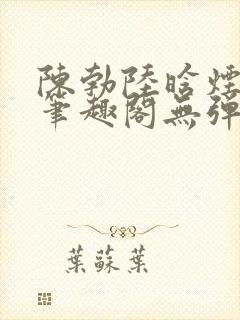 陳勃陸晗煙
筆趣閣無彈
葉蘇葉